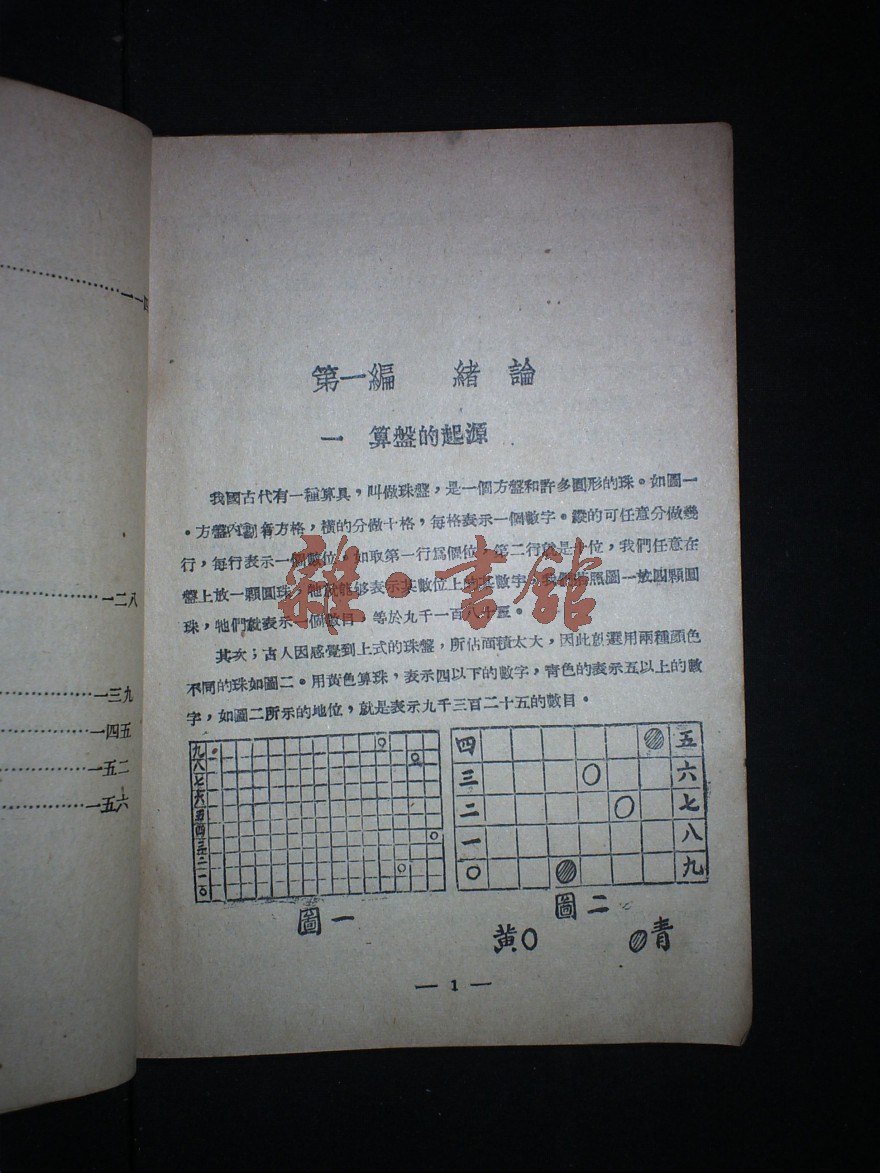 一一四
一二八
一三九
一四五
一五二
一五六
第一編 緒論
一 算盤的起源
我國古代有一種算具，叫做珠盤，是一個方盤和許多圓形的珠。如圖一
。方盤內劃有方格，橫的分做十格，每格表示一個數字。縱的可任意分做幾
行，每行表示一個數位。如取第一行爲個位，第二行就是十位，我們任意在
盤上放一顆圓珠，牠就能够表示某數位上的某數字。我們按照圖一放四顆圓
珠，牠們就表示一個數目，等於九千一百八十三。
其次；古人因感覺到上式的珠盤，所佔面積太大，因此創選用兩種顏色
不同的珠如圖二。用黃色算珠，表示四以下的數字，靑色的表示五以上的數
字，如圖二所示的地位，就是表示九千三百二十五的數目。
九
八
七
六
五
四
三
二
一
〇
圖一
四 五
三 六
二 七
一 八
〇 九
圖二
黃 青
— 1 —
雜·書館